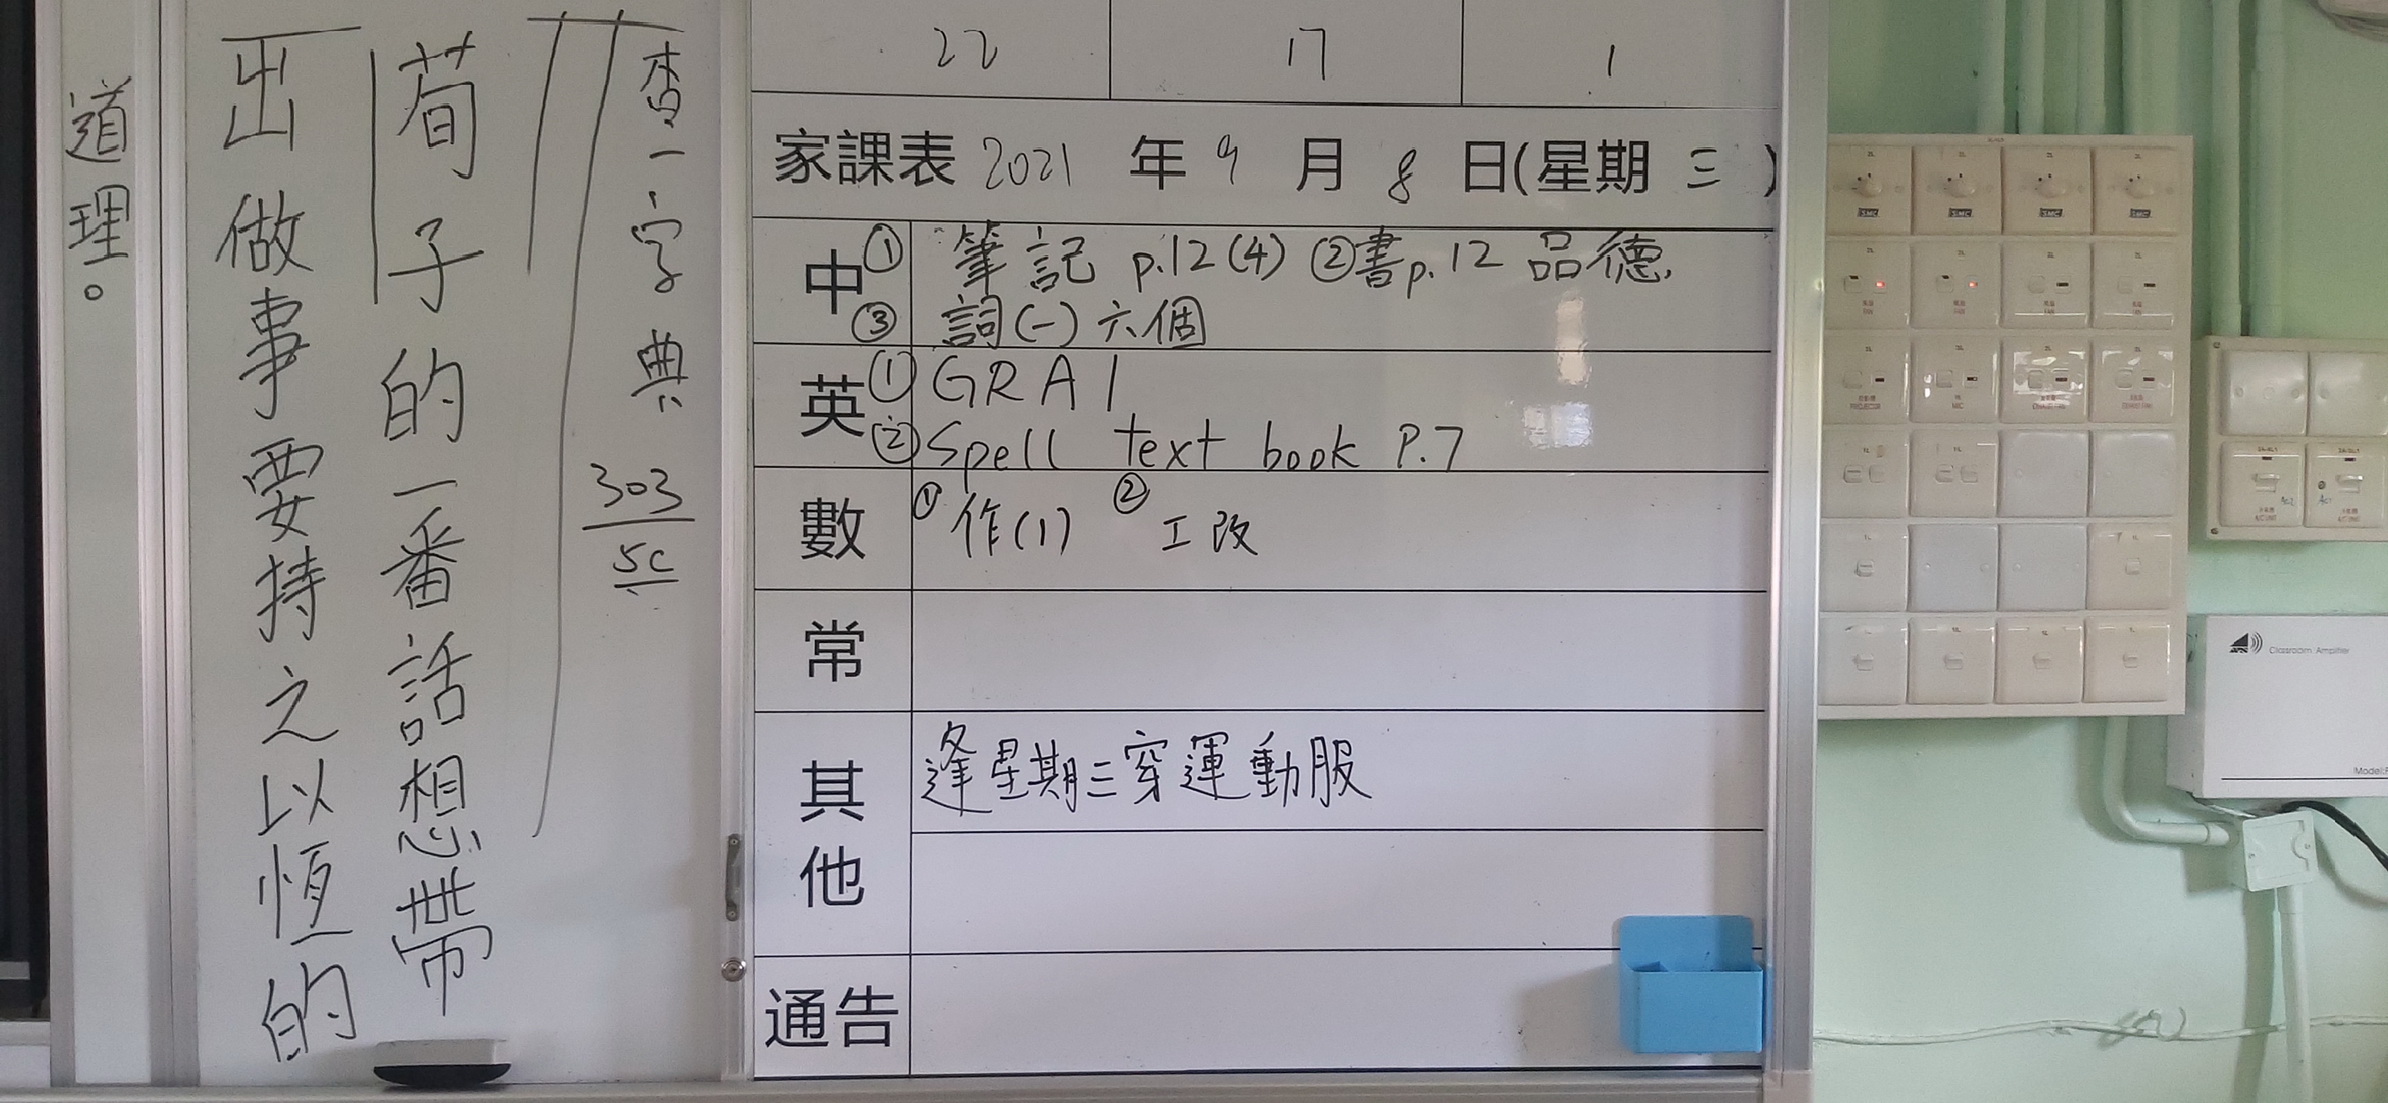 查一字典
303
5C
荀子的一番話想帶
出做事要持之以恆的
道理。
22 17 1
家課表 2021 年 9 月 8 日(星期 三 )
中 ① 筆記 p.12(4) ②書p.12 品德
③ 詞(一)六個
英 ① GRA 1
② Spell text book P.7
數 ① 作(1) ② 工改
常
其他 逢星期三穿運動服
通告
SMC SMC SMC SMC
Classroom Amplifier